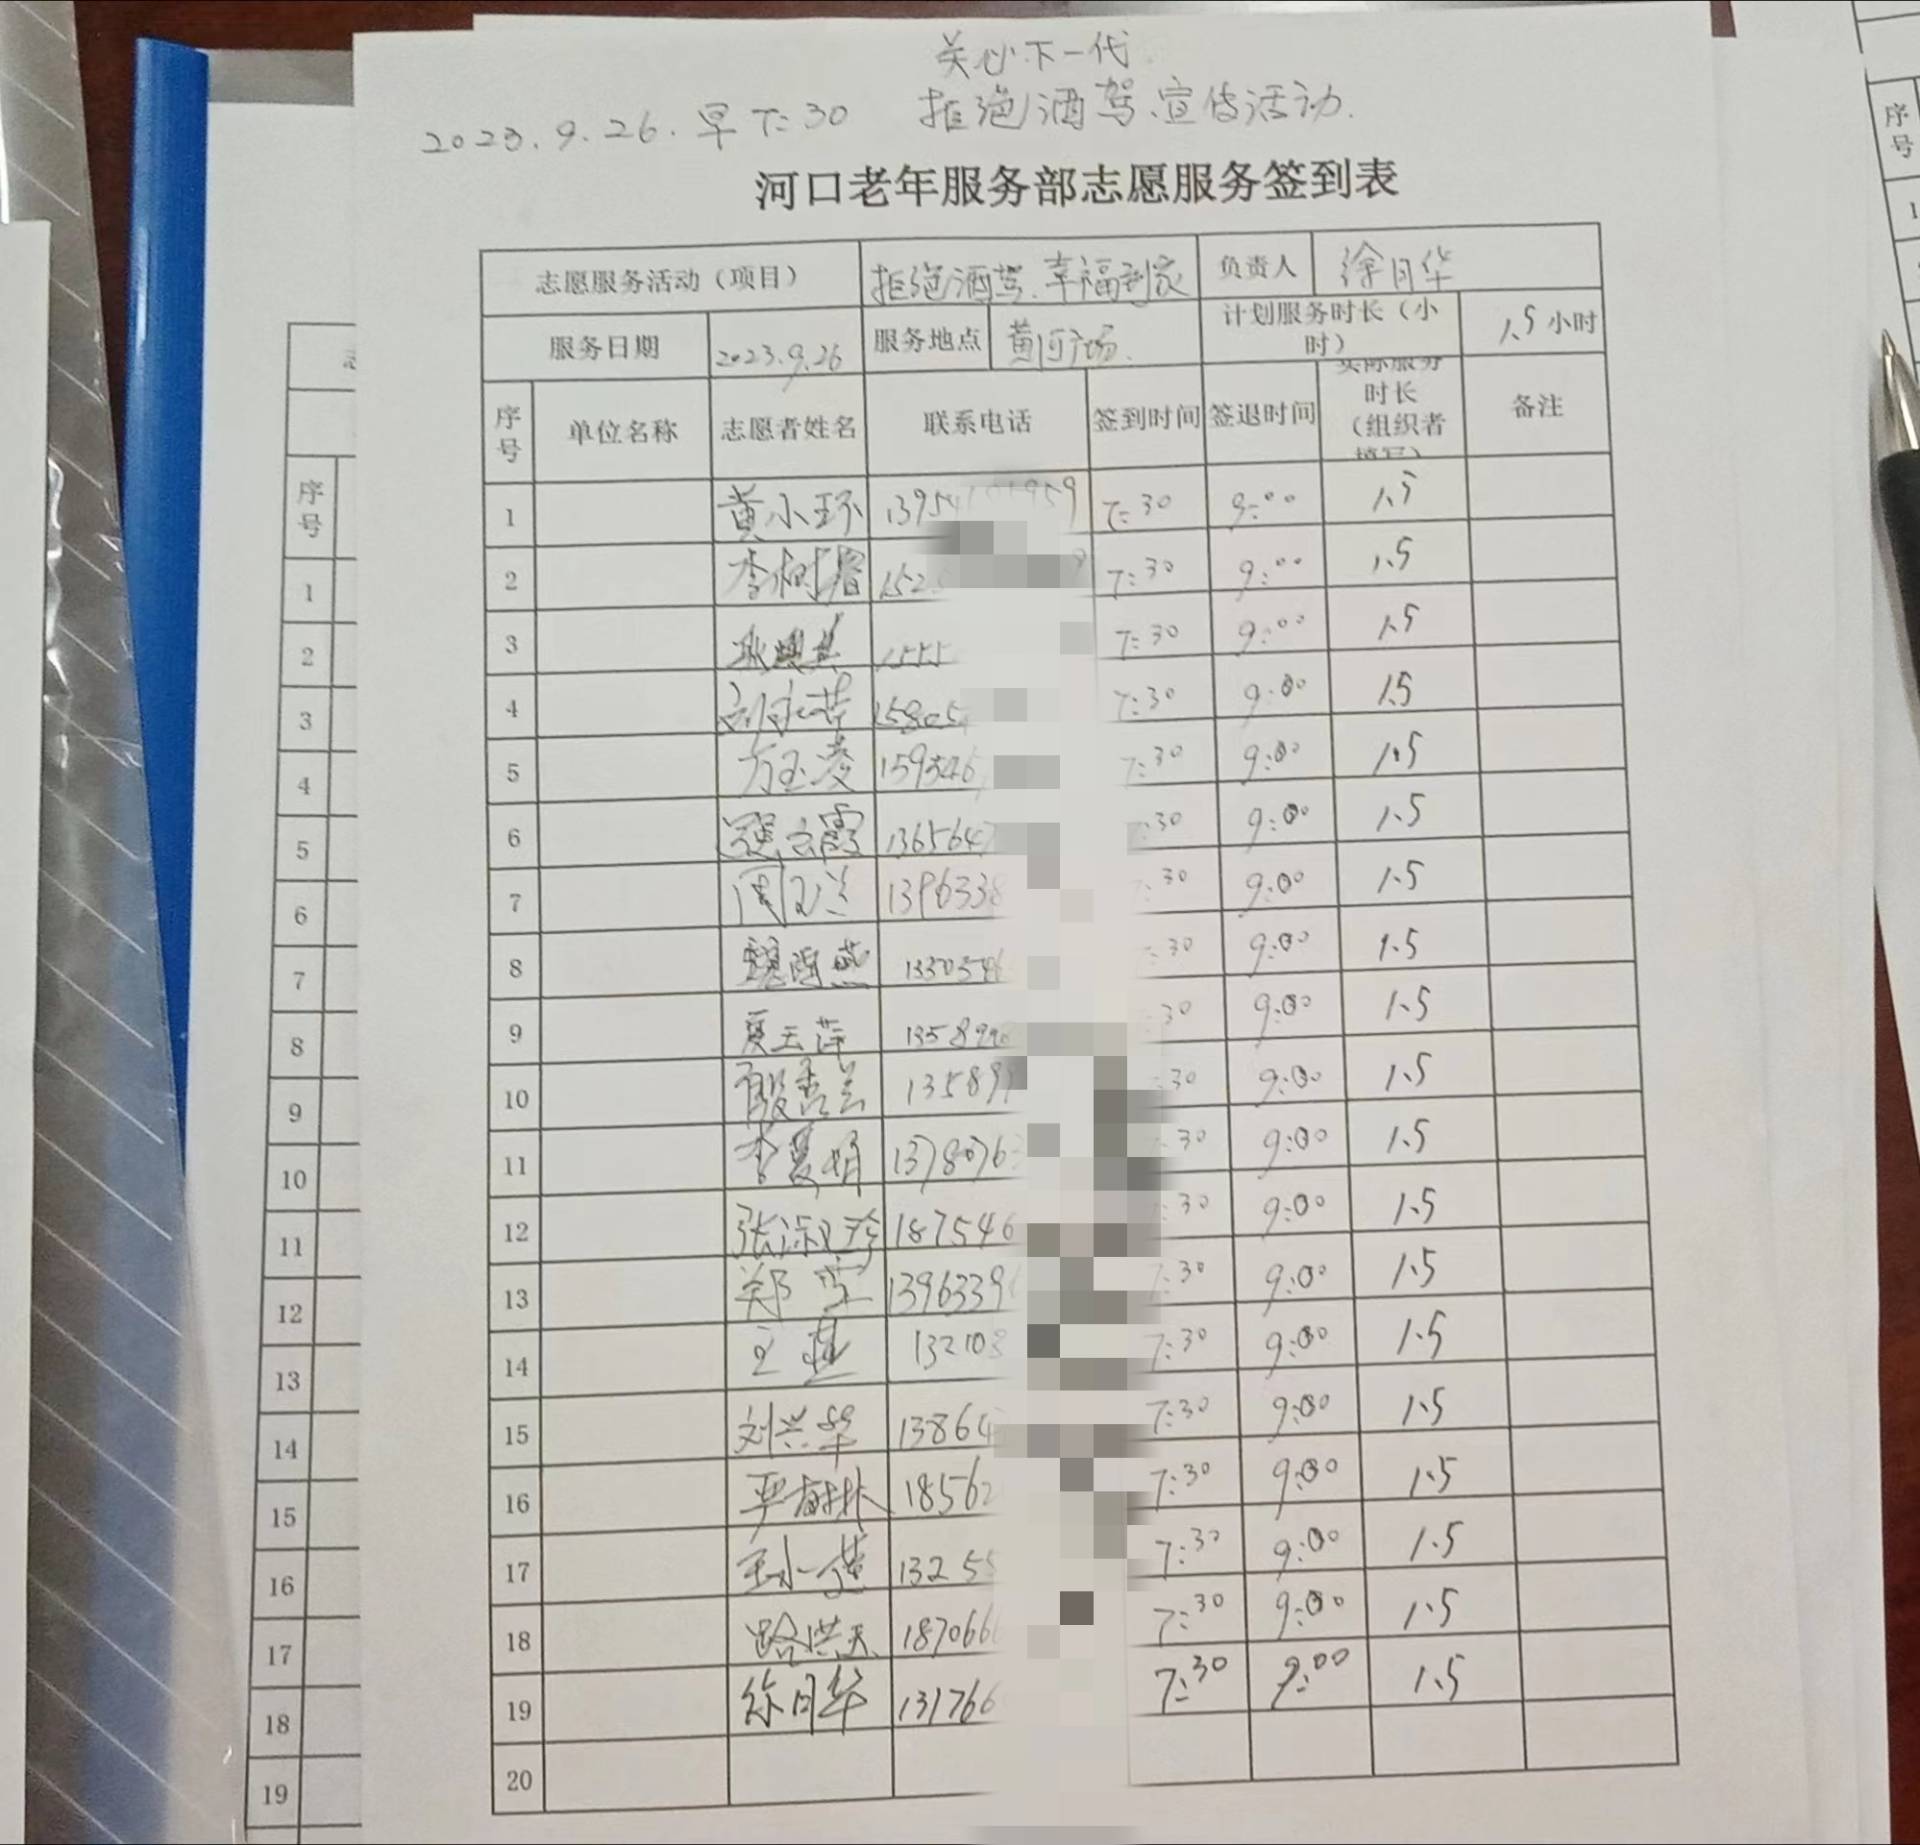 关心下一代
2023.9.26.早7:30 拒绝酒驾.宣传活动.
河口老年服务部志愿服务签到表
志愿服务活动（项目） 拒绝酒驾.幸福到家 负责人 徐月华
服务日期 2023.9.26 服务地点 黄河广场. 计划服务时长（小时） 1.5小时
序号 单位名称 志愿者姓名 联系电话 签到时间 签退时间 实际服务时长（组织者填写） 备注
1 黄小环 1395 959 7:30 9:00 1.5
2 李树眉 152 7:30 9:00 1.5
3 1555 7:30 9:00 1.5
4 15805 7:30 9:00 1.5
5 方玉凌 159546 7:30 9:00 1.5
6 云霞 1365647 :30 9:00 1.5
7 周 1396338 :30 9:00 1.5
8 1330546 :30 9:00 1.5
9 夏玉萍 13589 30 9:00 1.5
10 殷秀兰 13589 :30 9:00 1.5
11 李曼娟 13780763 30 9:00 1.5
12 张淑玲 187546 30 9:00 1.5
13 郑雪 1396339 7:30 9:00 1.5
14 王燕 132108 7:30 9:00 1.5
15 刘兴华 13864 7:30 9:00 1.5
16 严树林 18562 7:30 9:00 1.5
17 王小莲 13255 7:30 9:00 1.5
18 路洪天 187066 7:30 9:00 1.5
19 徐月华 131766 7:30 9:00 1.5
20
序号
1
2
3
4
5
6
7
8
9
10
11
12
13
14
15
16
17
18
19
序号
1